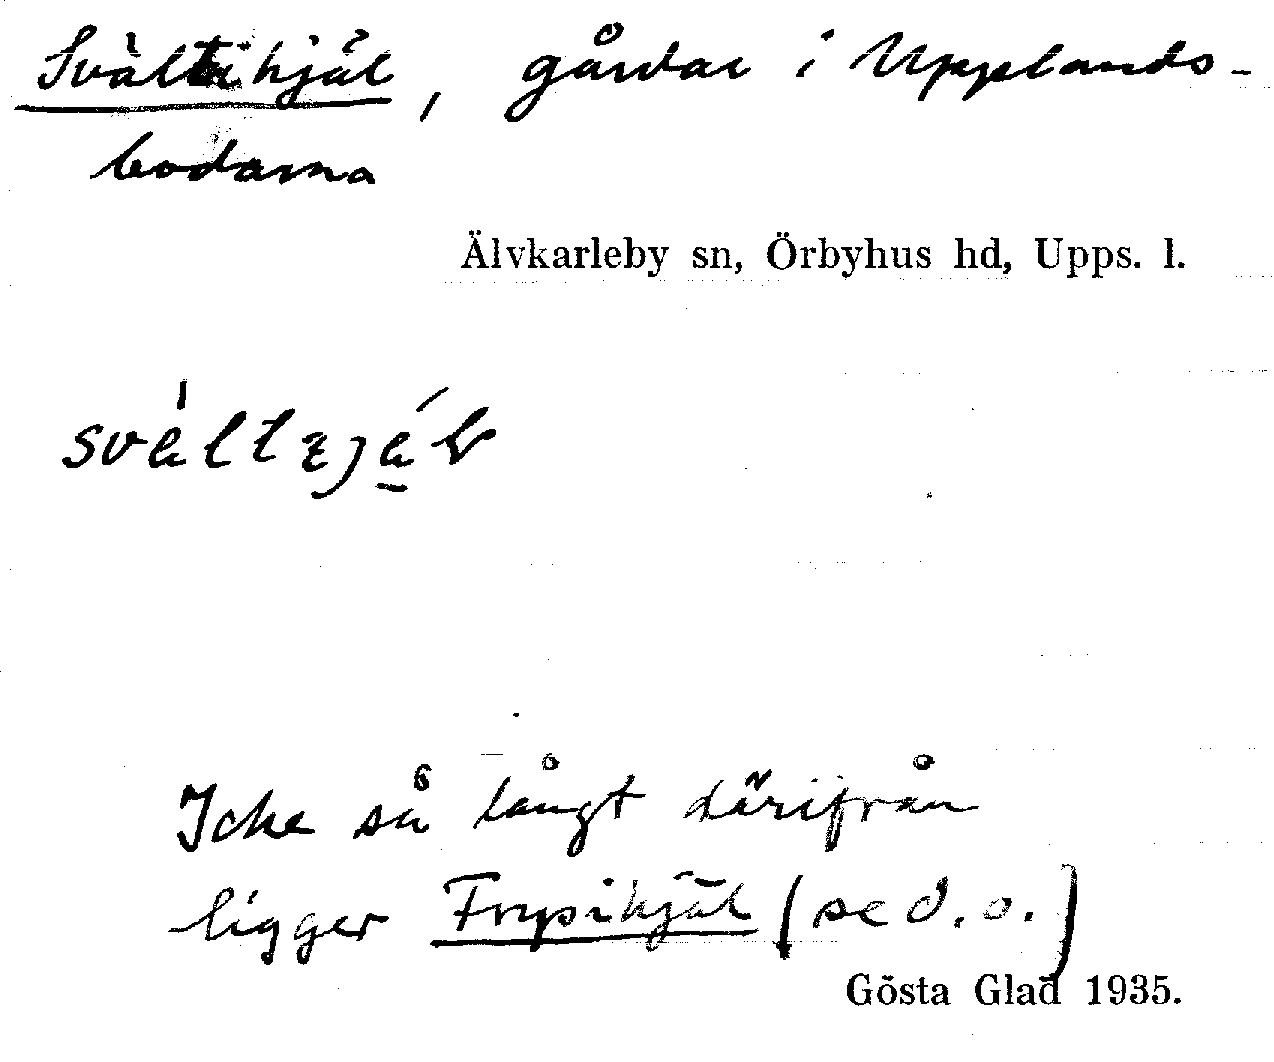 Svältihjäl, gårdar i Upplands-
bodarna
Älvkarleby sn, Örbyhus hd, Upps. l.
Icke så långt därifrån
ligger Frysihjäl (se d. o.)
Gösta Glad 1935.